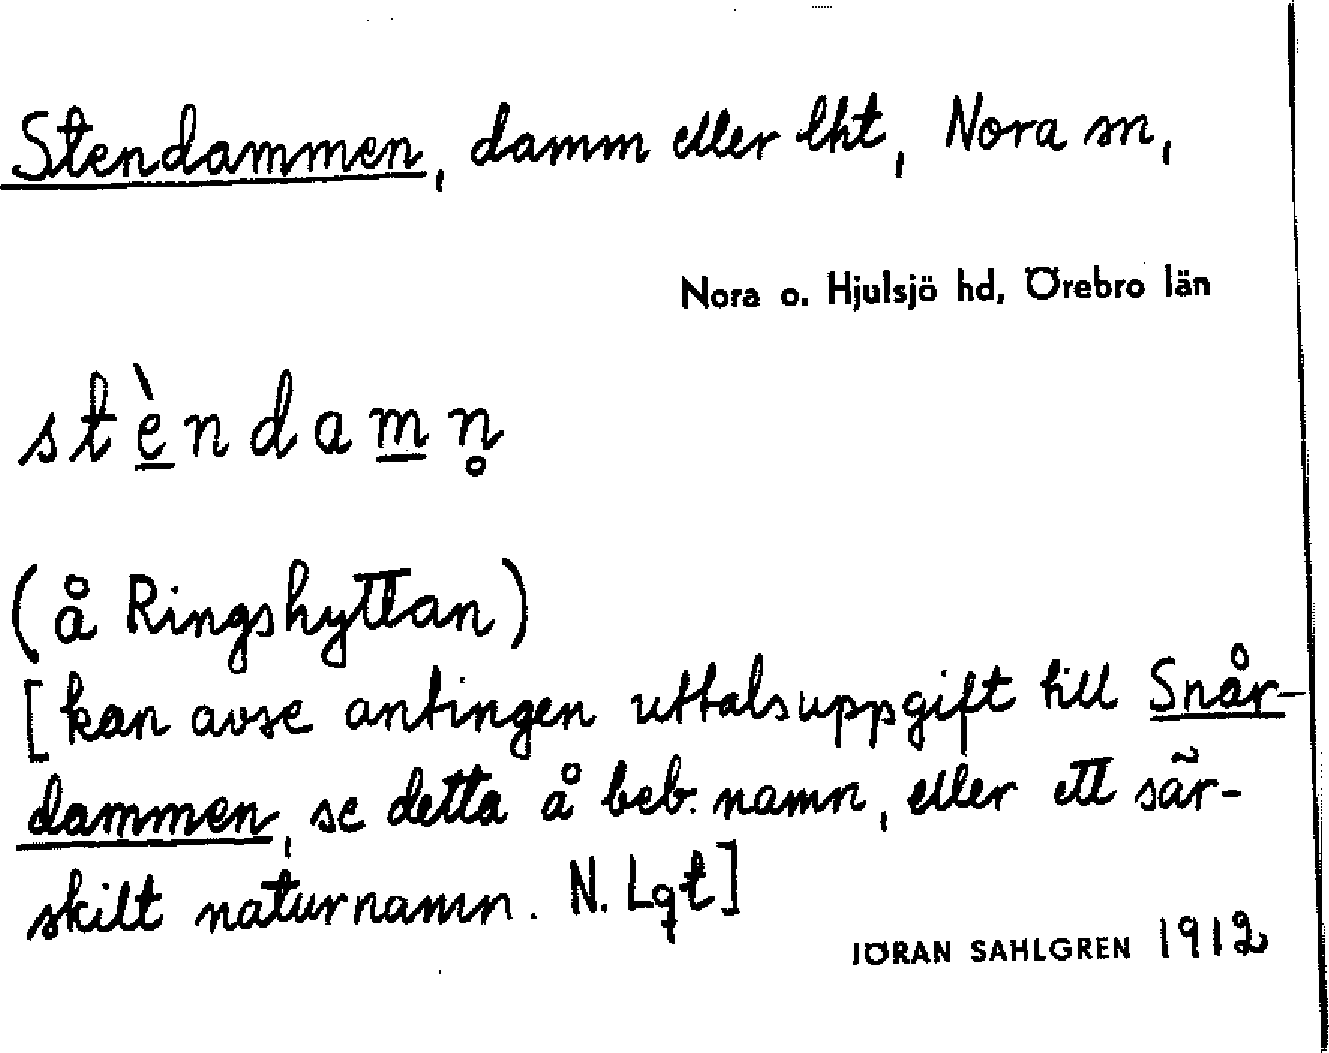 Stendammen, damm eller lht, Nora sn,
Nora o. Hjulsjö hd, Örebro län
stè̲ndam̲n̥
(å Ringshyttan)
[kan avse antingen uttalsuppgift till Snår-
dammen, se detta å beb. namn, eller ett sär-
skilt naturnamn. N. Lqt]
JÖRAN SAHLGREN 1912